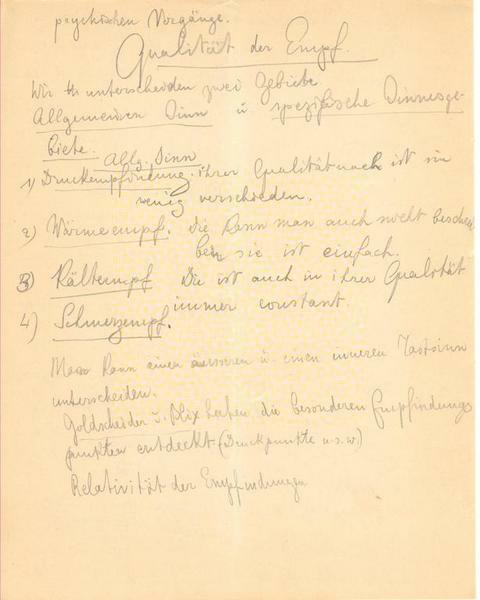 psychischen Vorgänge.
Qualität der Empf.
Wir unterscheiden zwei Gebiete
Allgemeinen Sinn u spezifische Sinnesge-
biete. Allg. Sinn
1) Druckempfindung. ihrer Qualität nach ist sie
wenig verschieden.
2) Wärmeempf. die kann man auch nicht beschrei
ben sie ist einfach.
3) Kältempf Die ist auch in ihrer Qualität
immer constant.
4) Schmerzempf.
Man kann einen äusseren u. einen inneren Tastsinn
unterscheiden.
Goldscheider u. Blix haben die besonderen Empfindungs
punkten entdeckt (Druckpunkte u.s.w.)
Relativität der Empfindungen